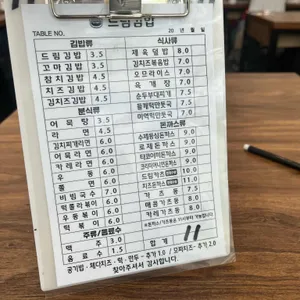 드림김밥
TABLE NO. 20 년 월 일
김밥류
드림김밥 3.5
꼬마김밥 3.5
참치김밥 4.5
치즈김밥 4.5
김치김밥 4.5
분식류
어묵탕 3.5
라면 4.5
김치찌개라면 6.0
어묵라면 6.0
카레라면 6.0
우동 6.0
쫄면 6.0
비빔국수 7.0
떡볶이 6.0
우동볶이 6.0
떡볶이 6.0
주류/음료수
맥주 3.0
음료수 1.5
식사류
제육덮밥 8.0
김치볶음밥 7.0
오므라이스 7.0
육개장 7.0
순두부찌개 7.0
들깨떡만둣국 7.5
미역떡만둣국 7.0
돈까스류
수제등심돈까스 9.0
로제돈까스 9.0
9.0
9.0
드림 11.0
치즈돈까스 10.0
가츠동 7.5
매콤가츠동 8.0
카레가츠동 8.0
합계 11
공기밥·체다치즈·떡·만두 - 추가 1.0 / 모짜치즈 - 추가 2.0
찾아주셔서 감사합니다.